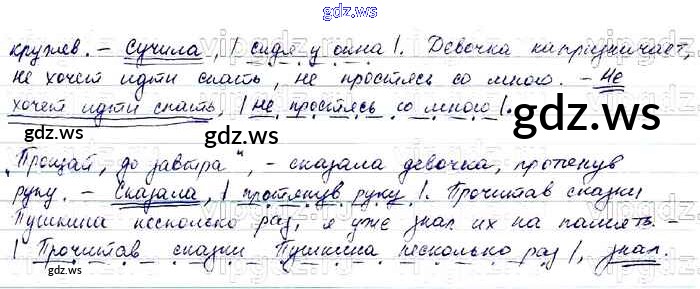 gdz.ws
кружев. – Сучила, | сидя у окна |. Девочка капризничает,
не хочет идти спать, не простясь со мною. – Не
хочет идти спать, | не простясь со мною |.
gdz.ws
gdz.ws
„Прощай, до завтра", – сказала девочка, протянув
руку. – Сказала, | протянув руку |. Прочитав сказки
gdz.ws
Пушкина несколько раз, я уже знал их на память. –
| Прочитав сказки Пушкина несколько раз |, знал.
gdz.ws